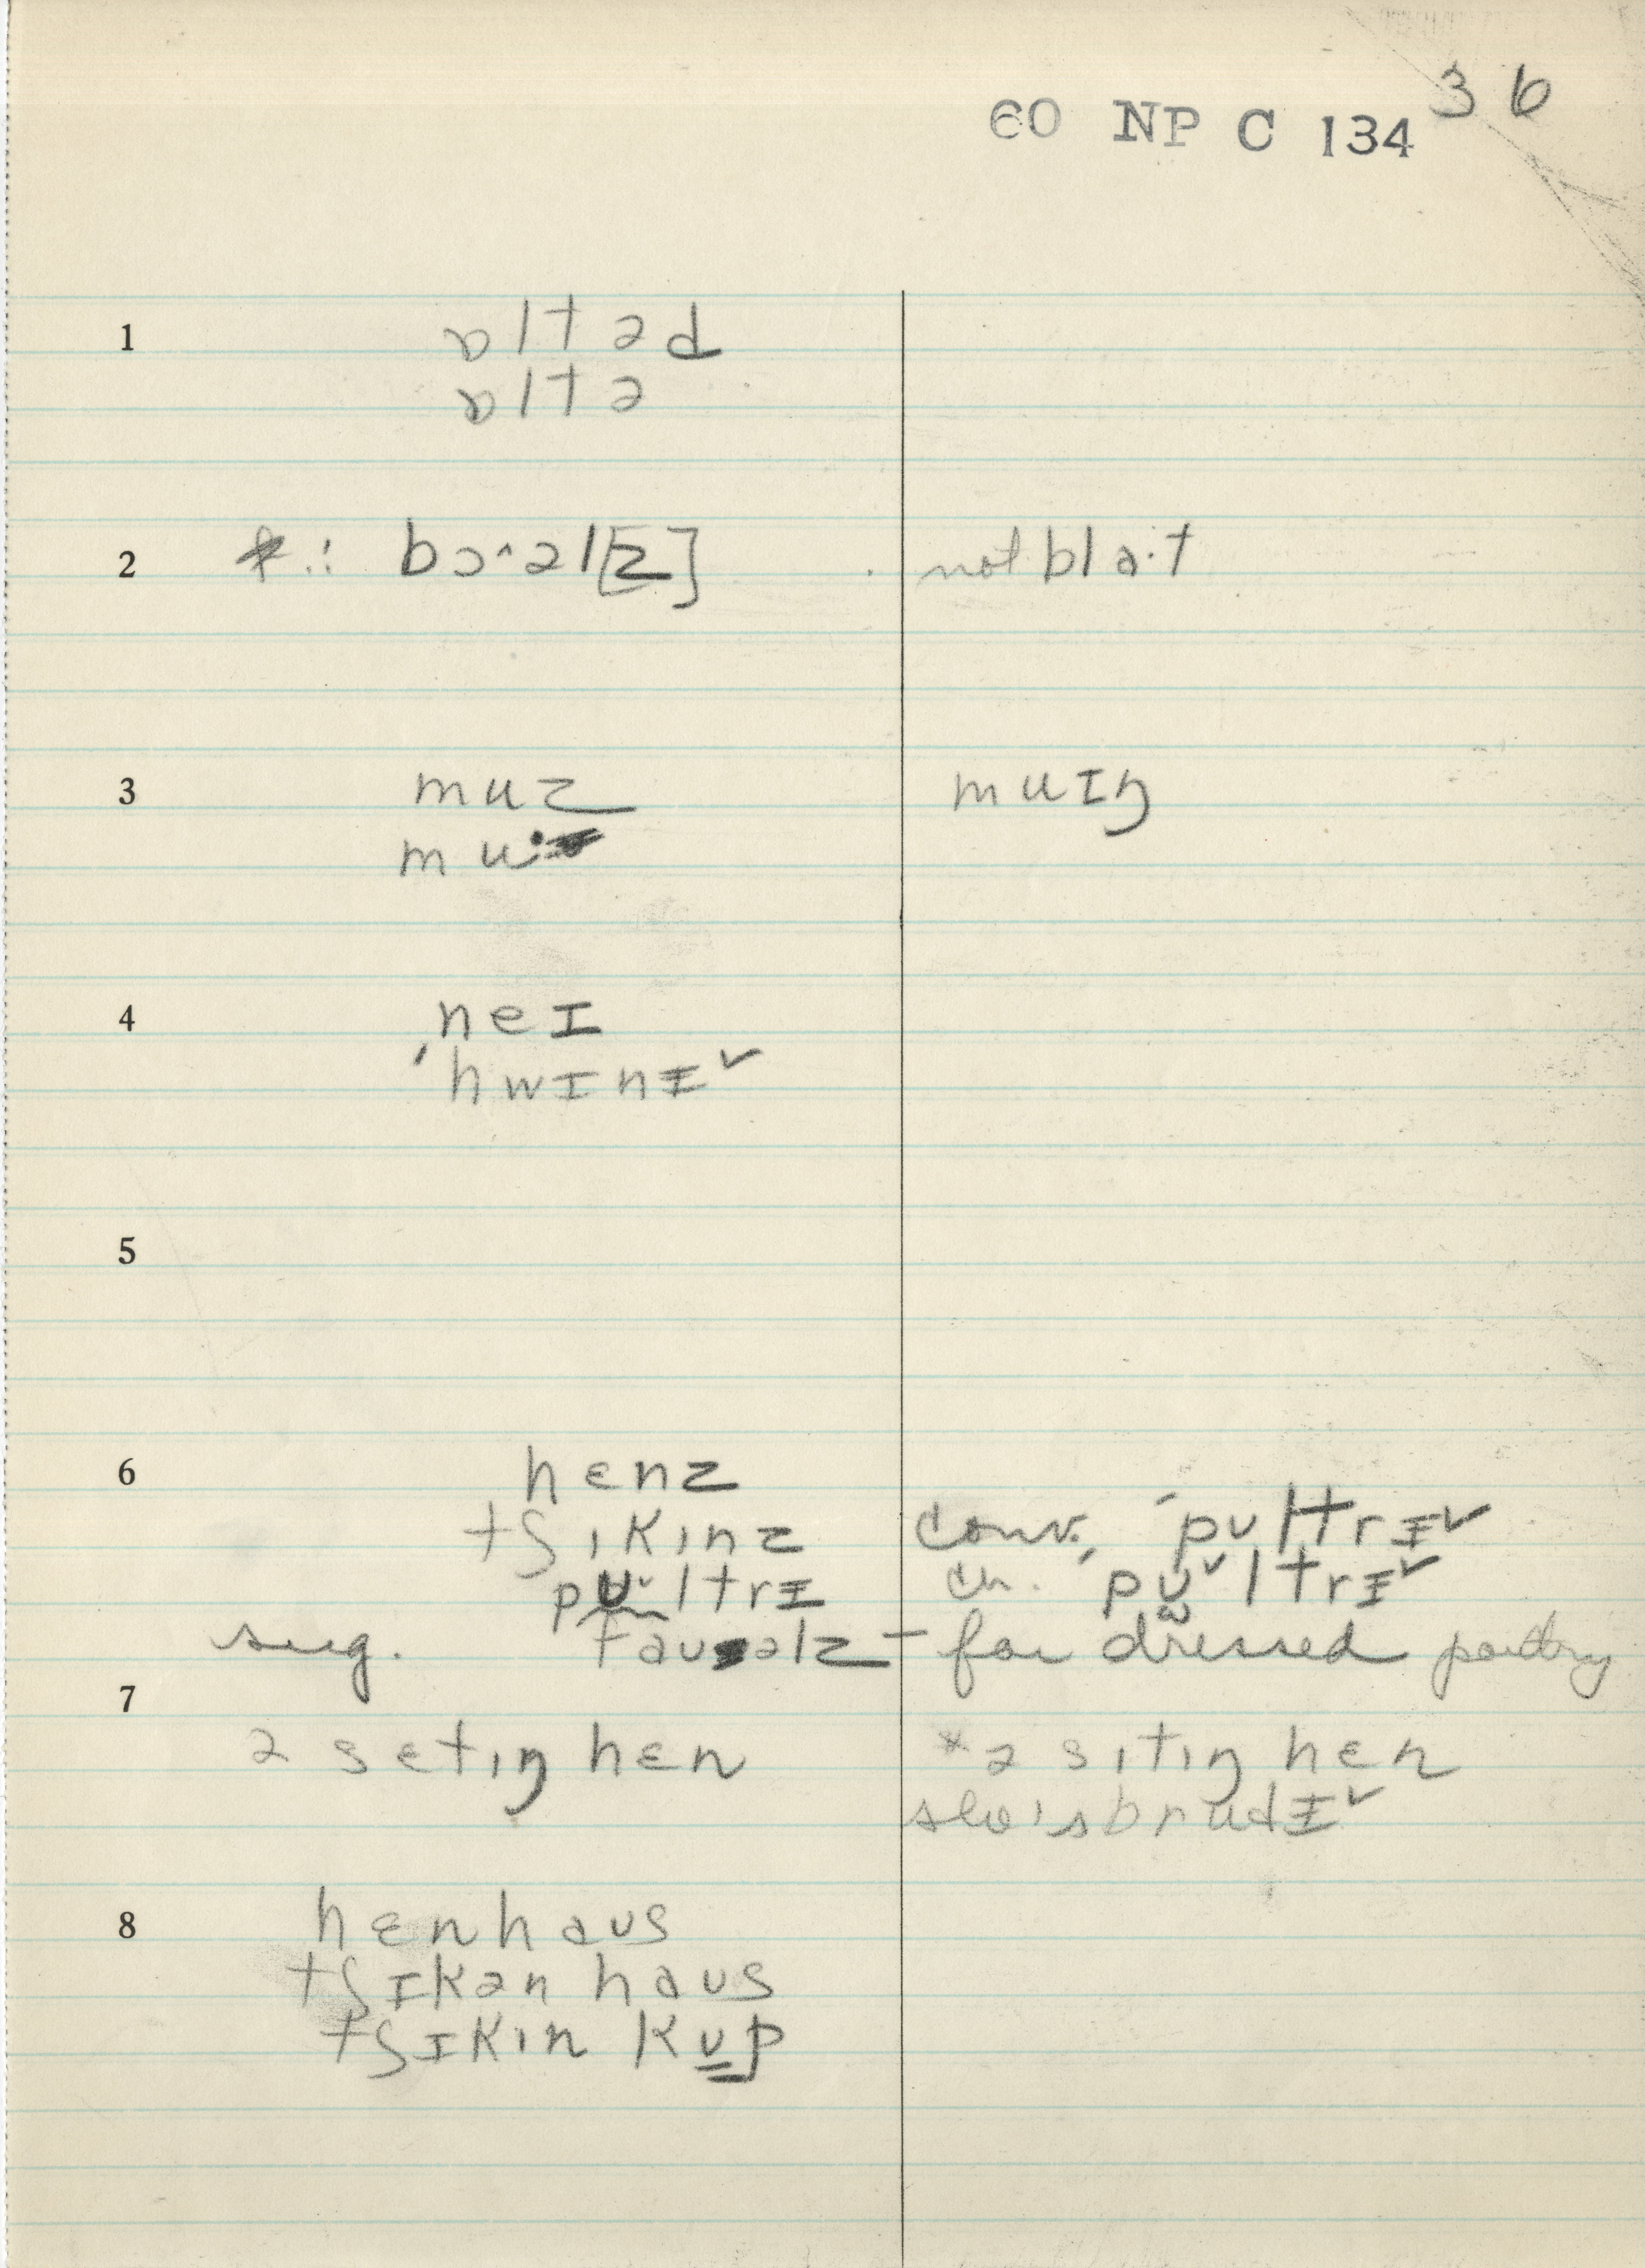 60 NP C 134 36
1
ɒltəd
ɒltə
2
*.: bɔ˄əl[z] not bla·t
3
muz muɪŋ
mu:
4
neɪ
ˈhwɪnɪˇ
5
6
hɛnz
tʃɪkɪnz conv. ˈpʊltrɪˇ
pʊˇltrɪ ch. ˈpʊˇltrɪˇ
sug. faʊəlz – for dressed poultry
7
ə sɛtɪŋ hɛn *ə sɪtɪŋ hɛn
she's brudɪˇ
8
hɛnhaʊs
tʃɪkən haʊs
tʃɪkɪn kʊp